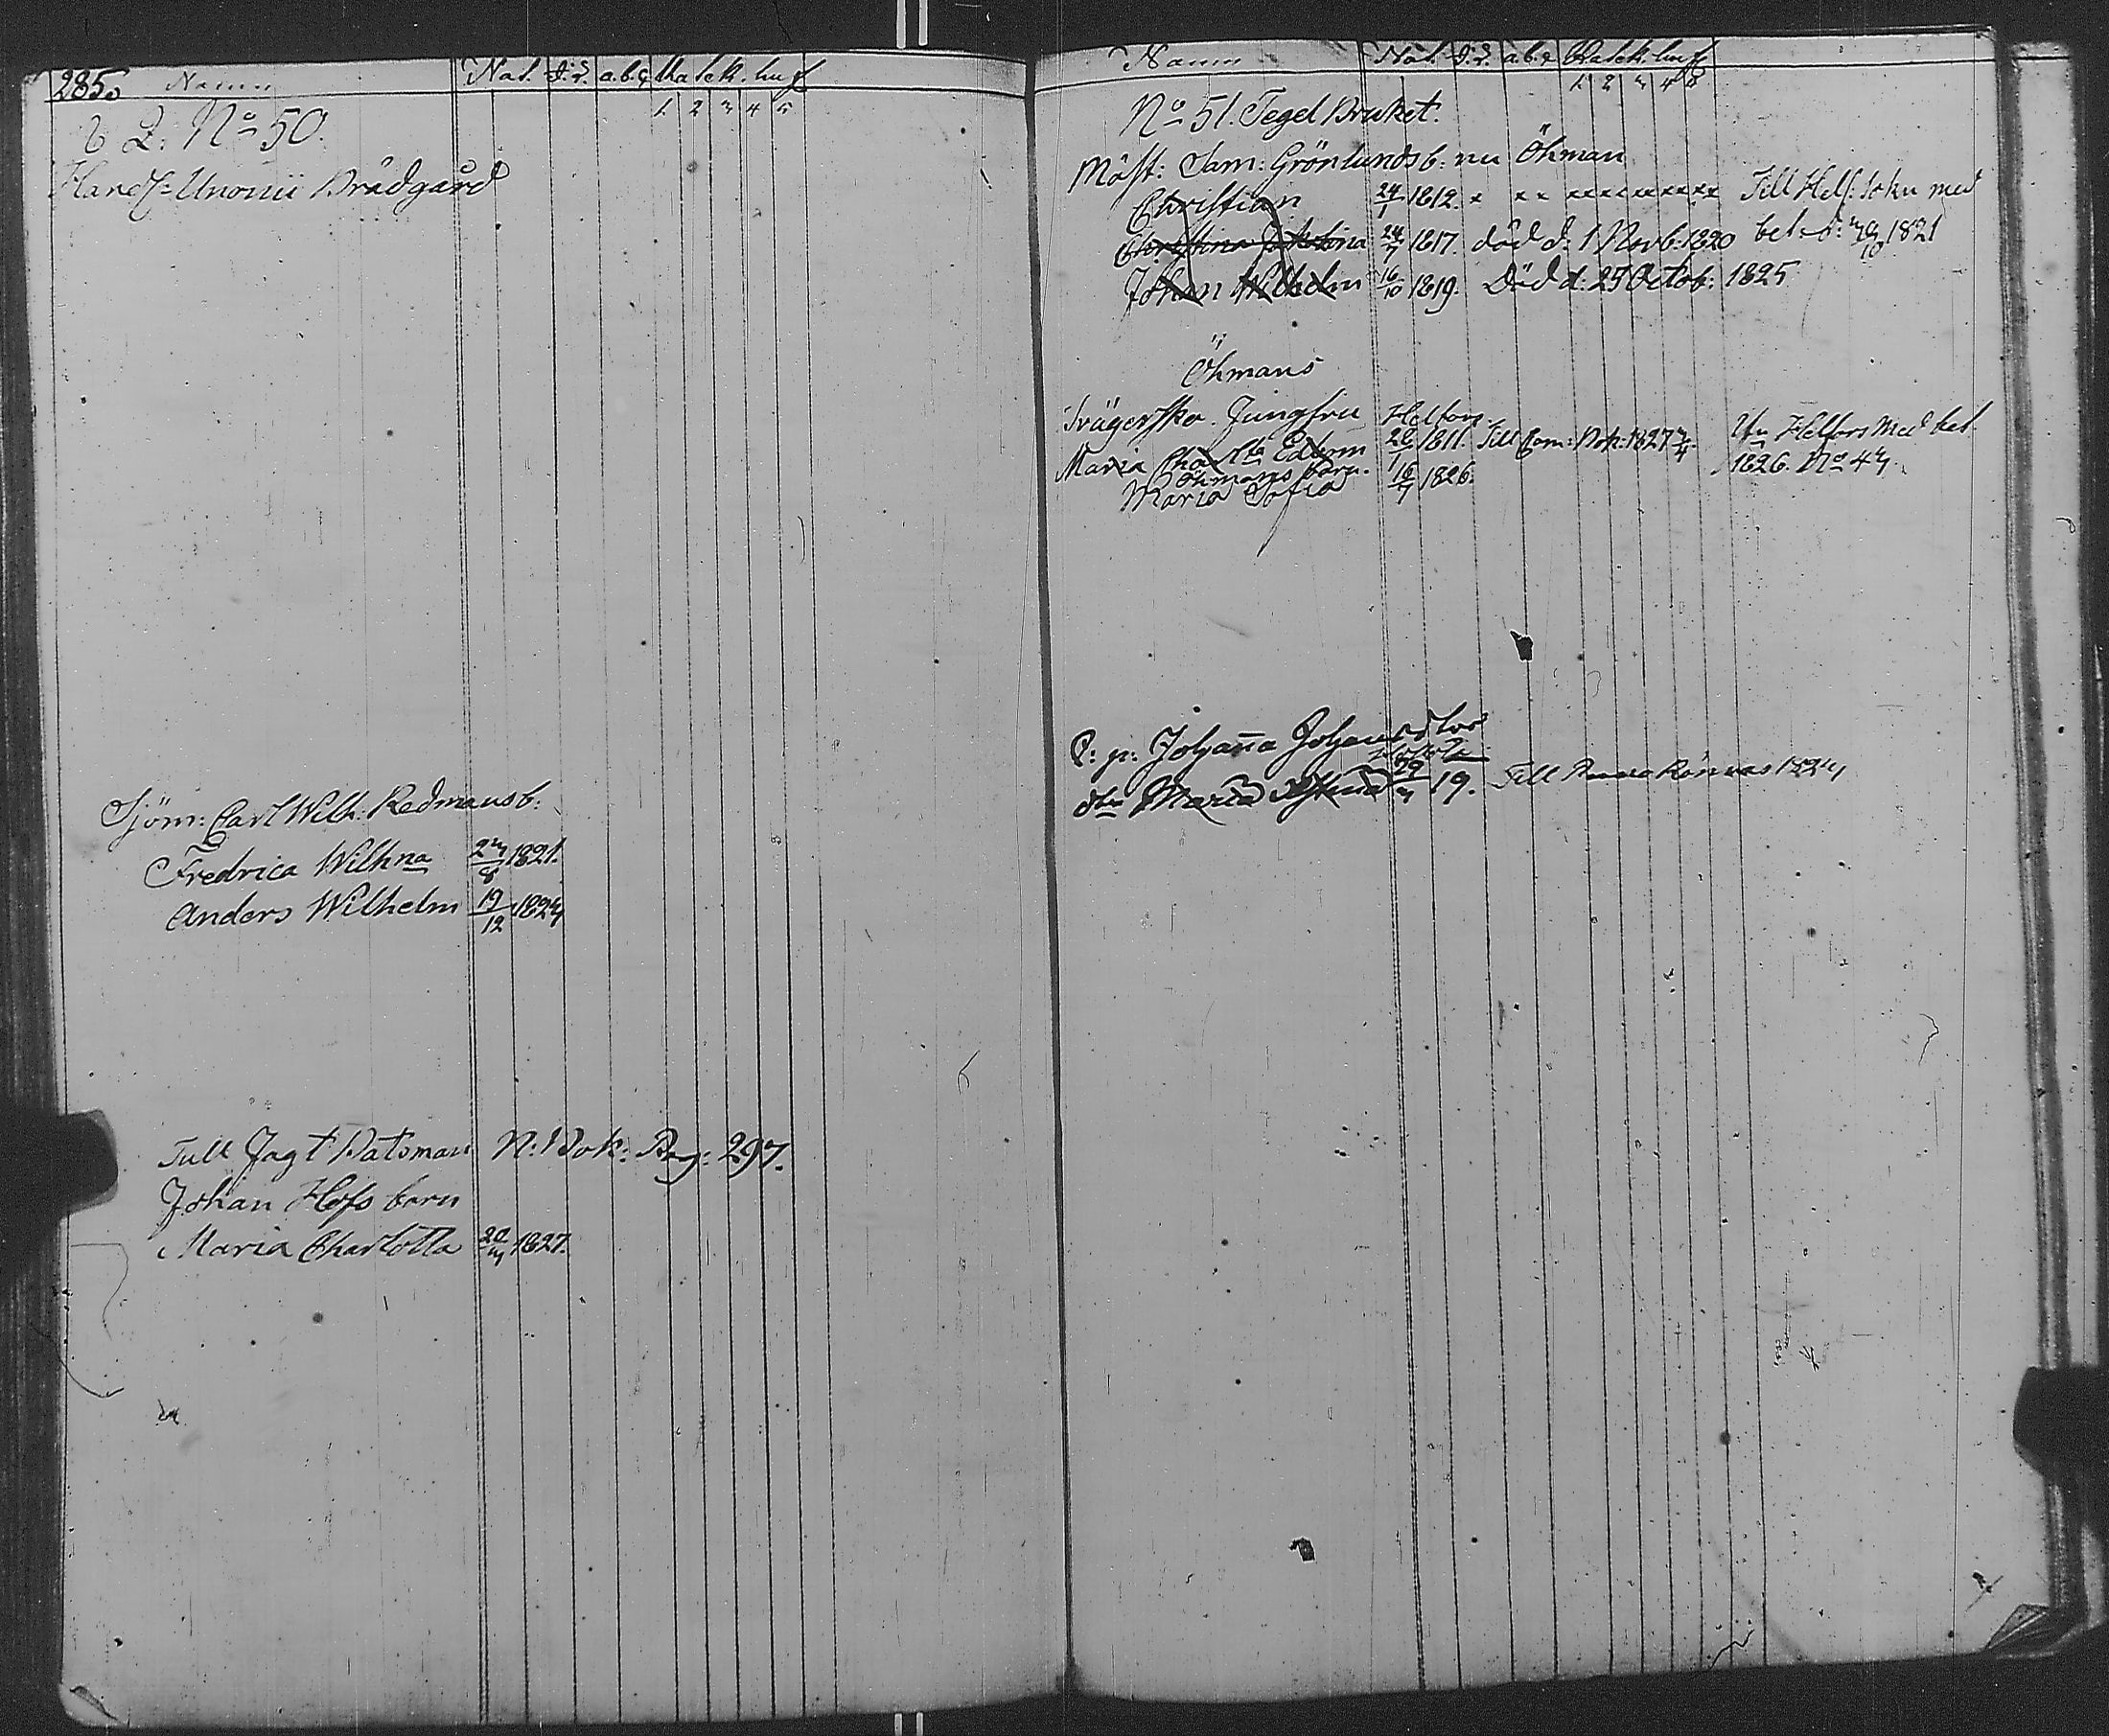 285. Namn Nat. I.L. a.b.c. Katek. huf
1 2 3 4 5
b Q: No 50.
Handl: Unonii Brädgård
Sjöm: Carl Wilh: Redmans b:
Fredrica Wilhna 24/8 1821.
Anders Wilhelm 19/12 1824
Tull Jagt Batsman N: Bok: Pag: 297.
Johan Hofs barn
Maria Charlotta 20/4 1827.
Namn Nat. I.L. a.b.c Katek. huf
1 2 3 4 5
No 51. Tegel Bruket.
Mäst: Sam: Grönlunds b: nu Öhman
Christian 24/1 1812. x x x x x x x x x x Till Hels: Sokn med
Christina 24/7 1817. död d: 1 Novb: 1820 bet: d: 1821
Johan Wilhelm 16/10 1819. Död d: 25 Octob: 1825
Öhmans
Svägerska. Jungfru Helfors
Maria 26/1 1811. Till Com: Bok: 1827 Utr Helfors med bet
Öhmans barn. 1826. No 44.
Maria Sofia 16/7 1826.
P: p: Johanna
dtr Maria 19. Till 1824